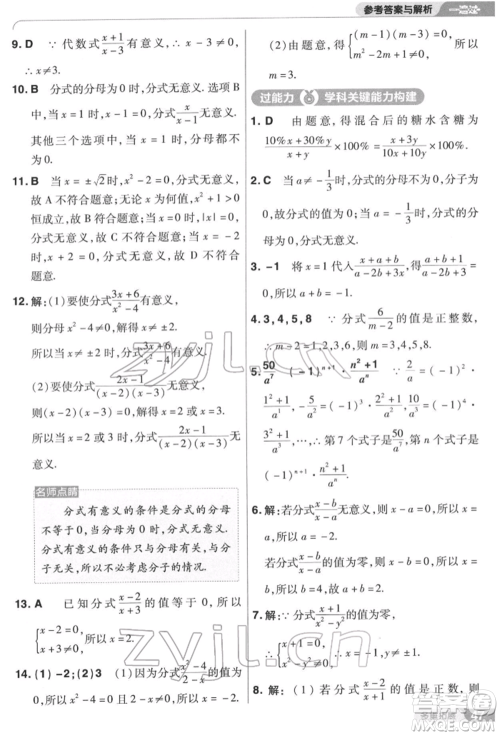 参考答案与解析
9. D ∵ 代数式(x+1)/(x-3)有意义, ∴ x-3≠0,
∴ x≠3.
10. B 分式的分母为 0 时,分式无意义. 选项 B
中,当 x=1 时,分母 x-1=0,分式x/(x-1)无意义.
其他三个选项中,当 x=1 时,分式有意义.
11. B 当 x=±√2时, x²-2=0, 分式无意义,
故 A 不符合题意;无论 x 为何值, x²+1>0
恒成立,故 B 符合题意;当 x=0 时, |x|=0,
分式无意义,故 C 不符合题意;当 x=-2
时, x+2=0, 分式无意义,故 D 不符合
题意.
12. 解: (1)要使分式(3x+6)/(x²-4)有意义,
则分母 x²-4≠0,解得 x≠±2.
所以当 x≠±2 时,分式(3x+6)/(x²-4)有意义.
(2)要使分式(2x-1)/((x-2)(x-3))无意义,
则(x-2)(x-3)=0,解得 x=2 或 3.
所以当 x=2 或 3 时,分式(2x-1)/((x-2)(x-3))无意义.
名师点睛
分式有意义的条件是分式的分母
不等于 0,当分母为 0 时,分式无意义.
分式有无意义的条件只与分母有关,与分子无关,
所以不必考虑分子的情况.
13. A 已知分式(x-2)/(x+3)的值等于 0, 所以
{x-2=0, x+3≠0, 所以 x=2.
14. (1)-2;(2)3 (1)∵ 分式(x²-4)/(x-2)的值为
0, ∴ {x²-4=0, x-2≠0, 解得 x=-2.
(2)由题意,得{(m-1)(m-3)=0, m²-3m+2≠0, 解得
m=3.
过能力 学科关键能力构建
1. D 由题意,得混合后的糖水含糖为
(10%x+30%y)/(x+y)×100%=(x+3y)/(10x+10y)×100%.
2. C 当 a=-1/3时,分式的分母不为 0,分子为
0,故当 a≠-1/3时,分式的值不为 0,分式的
3. -1 将 x=1 代入(x+a+b)/(a-2b+3x),得(a+b+1)/(a-2b+3)=
0,所以 a+b=-1.
4. 3,4,5,8 ∵ 分式6/(m-2)的值是正整数,
∴ m-2=1,2,3,6,则 m=3,4,5,8.
5. 50/a⁷ (-1)ⁿ⁺¹·(n²+1)/aⁿ ∵ 2/a=(-1)²·
(1²+1)/a¹, -5/a²=(-1)³·(2²+1)/a², 10/a³=(-1)⁴·
∴ 第 7 个式子是50/a⁷,第 n 个式子是
(-1)ⁿ⁺¹·(n²+1)/aⁿ.
6. 解: 若分式(x-b)/(x-a)无意义,则 x-a=0,所以
a=x.
若分式(x-b)/(x-a)的值为零,则 x-b=0,所以
b=x.
7. 解: ∵ 分式(x+1)/(x²-y²)的值为零,
∴ {x+1=0, x²-y²≠0, ∴
8. 解: (1)若分式(x+3)/(x-2)的值为零,则
zyjl.cn
zyjl.cn
答案圈